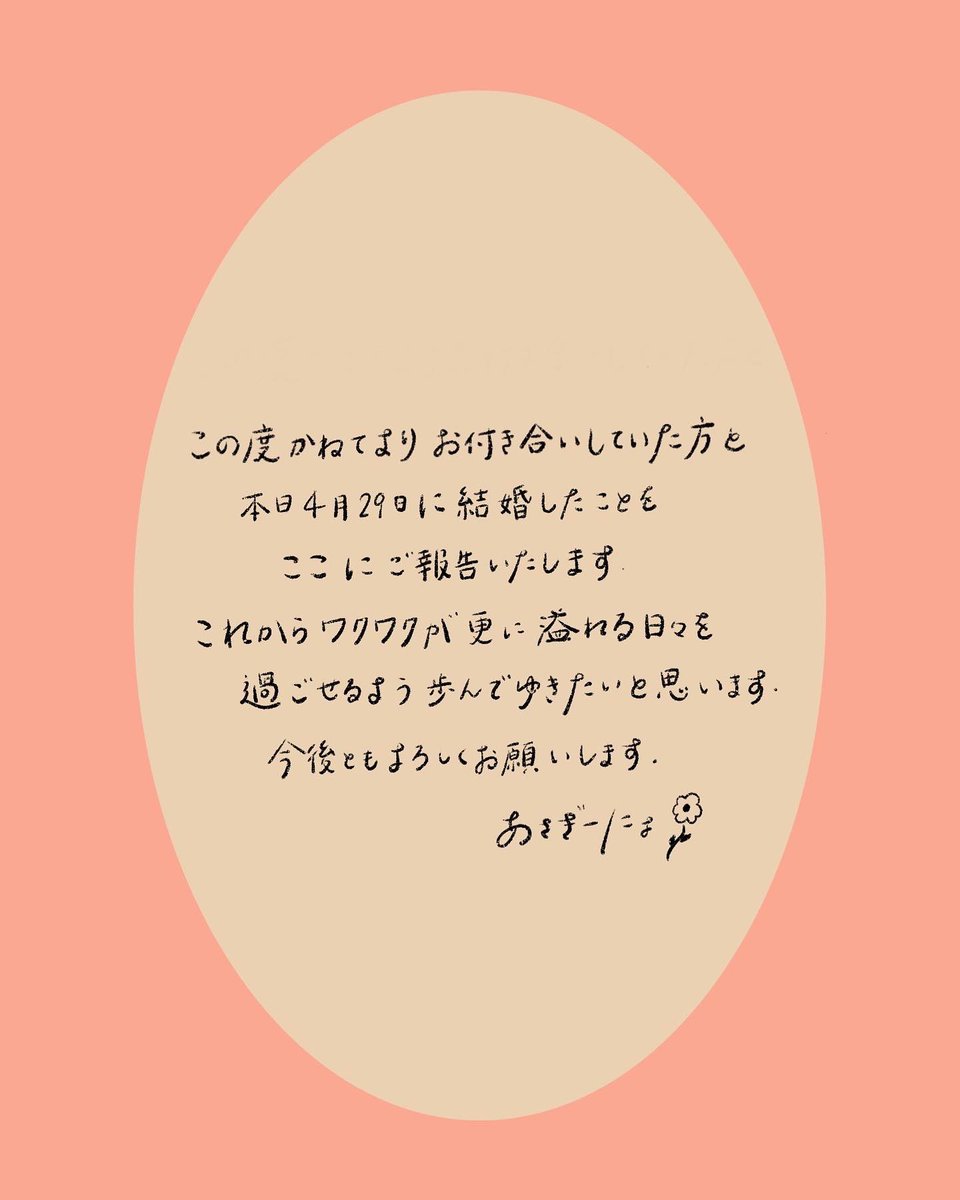 この度かねてより お付き合いしていた方と
本日4月29日に結婚したことを
ここにご報告いたします.
これからワクワクが更に溢れる日々を
過ごせるよう歩んでゆきたいと思います.
今後ともよろしくお願いします.
あさぎーにょ